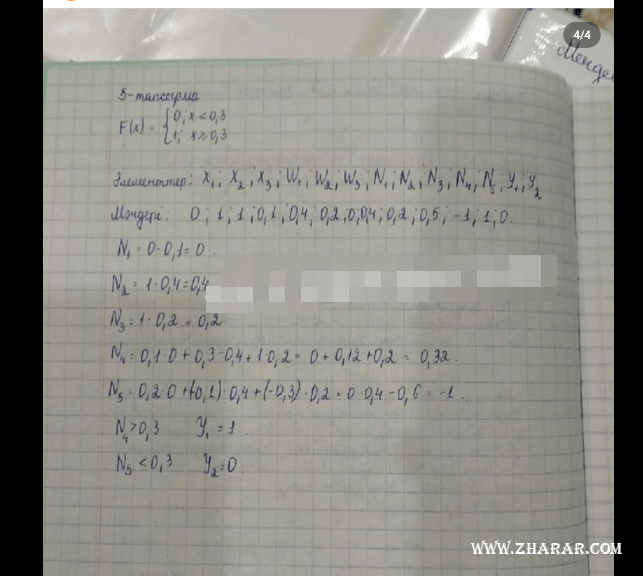 4/4
Менде
5-тапсырма
F(x) = {0; x < 0,3
1; x ≥ 0,3
Элементтер: X₁; X₂; X₃; W₁; W₂; W₃; N₁; N₂; N₃; N₄; N₅; Y₁; Y₂
Мәндері: 0; 1; 1; 0,1; 0,4; 0,2; 0; 0,4; 0,2; 0,5; -1; 1; 0.
N₁ = 0·0,1 = 0
N₂ = 1·0,4 = 0,4
N₃ = 1·0,2 = 0,2
N₄ = 0,1·0 + 0,3·0,4 + 1·0,2 = 0 + 0,12 + 0,2 = 0,32.
N₅ = 0,2·0 + (-0,1)·0,4 + (-0,3)·0,2 = 0·0,4 - 0,6 = -1.
N₄ > 0,3 Y₁ = 1
N₅ < 0,3 Y₂ = 0
WWW.ZHARAR.COM